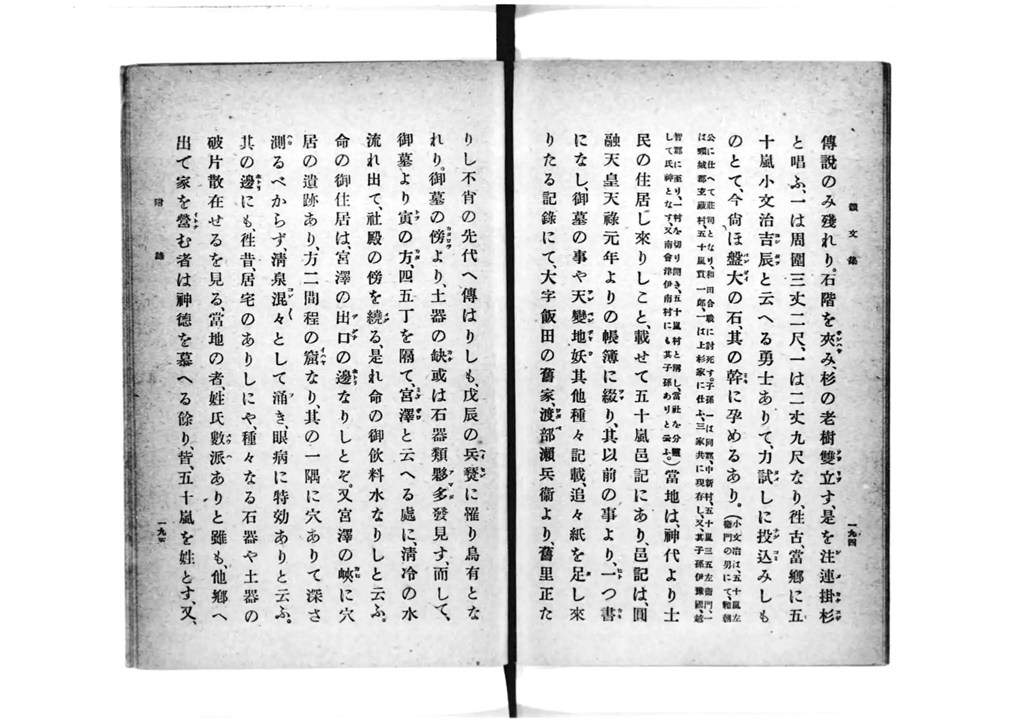 傳說のみ殘れり。石階を夾み、杉の老樹雙立す、是を注連掛杉
と唱ふ、一は周圍三丈二尺、一は二丈九尺なり、徃古、當鄕に五
十嵐小文治吉辰と云へる勇士ありて、力試しに投込みしも
のとて、今尙ほ盤大の石、其の幹に孕めるあり。(小文治は、五十嵐左
衞門の男にて、賴朝
公に仕へて莊司となり、和田合戰に討死す。子孫一は同郡中新村、五十嵐三五左衞門、一
は頸城郡支藏村、五十嵐貢一郎、一は上杉家に仕ふ、三家共に現存し、又、其子孫伊豫國、越
智郡に至り、一村を切り開き、五十嵐村と濟し、當社を分靈
して氏神となす、又南會津伊南村にも其子孫ありと云ふ。)當地は、神代より士
民の住居し來りしこと、載せて五十嵐邑記にあり、邑記は、圓
融天皇天祿元年よりの帳簿に綴り、其以前の事より、一つ書
になし、御墓の事や天變地妖其他種々記載、追々紙を足し來
りたる記錄にて、大字飯田の舊家、渡部瀬兵衞より、舊里正た
續文集
一九四
りし不肖の先代へ傳はりしも、戊辰の兵燹に罹り烏有とな
れり。御墓の傍より、土器の缺或は石器類夥多發見す、而して、
御墓より寅の方、四五丁を隔て、宮澤と云へる處に、淸冷の水
流れ出て、社殿の傍を繞る、是れ命の御飮料水なりしと云ふ。
命の御住居は、宮澤の出口の邊なりしとぞ。又宮澤の峽に穴
居の遺跡あり、方二間程の窟なり、其の一隅に穴ありて深さ
測るべからず淸泉混々として涌き、眼病に特効ありと云ふ。
其の邊にも、徃昔、居宅のありしにや、種々なる石器や土器の
破片散在せるを見る、當地の者、姓氏數派ありと雖も、他鄕へ
出て家を營む者は神德を慕へる餘り、皆、五十嵐を姓とす、又、
附錄
一九五